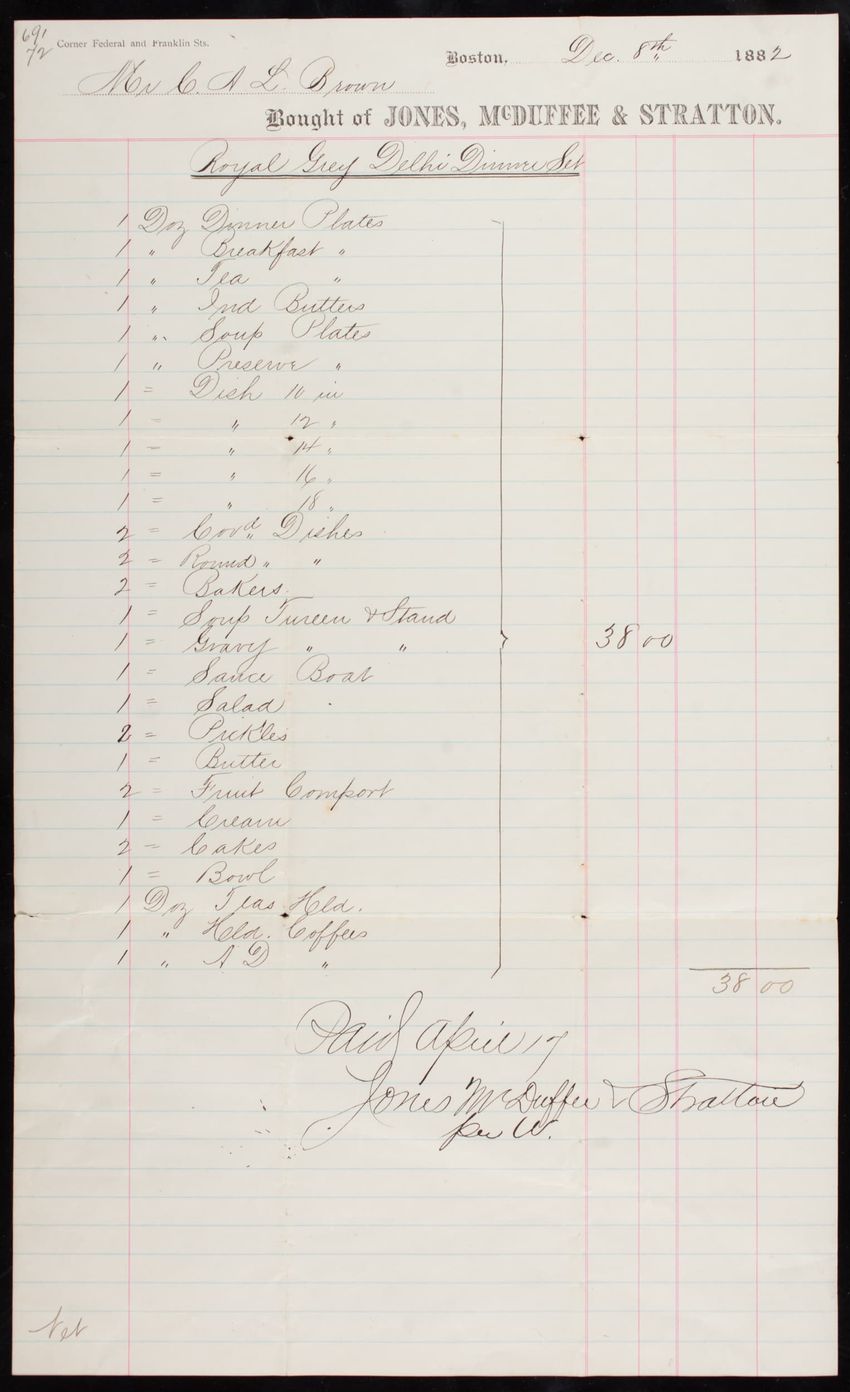 691
72
Corner Federal and Franklin Sts.
Boston, Dec. 8th 1882
Mr C. A L. Brown
Bought of JONES, McDUFFEE & STRATTON.
Royal Grey Delhi Dinner Set
1 Doz Dinner Plates
1 " Breakfast "
1 " Tea "
1 " Ind Butters
1 " Soup Plates
1 " Preserve "
1 = Dish 10 in
1 = " 12 "
1 = " 14 "
1 = " 16 "
1 = " 18 "
2 = Covd Dishes
2 = Round " "
2 = Bakers
1 = Soup Tureen & Stand
1 = Gravy " " 38 00
1 = Sauce Boat
1 = Salad
2 = Pickles
1 = Butter
2 = Fruit Comport
1 = Cream
2 = Cakes
1 = Bowl
1 Doz Teas Hld.
1 " Hld. Coffees
1 " A D "
38 00
Paid April 17
Jones McDuffee & Stratton
per W.
Net